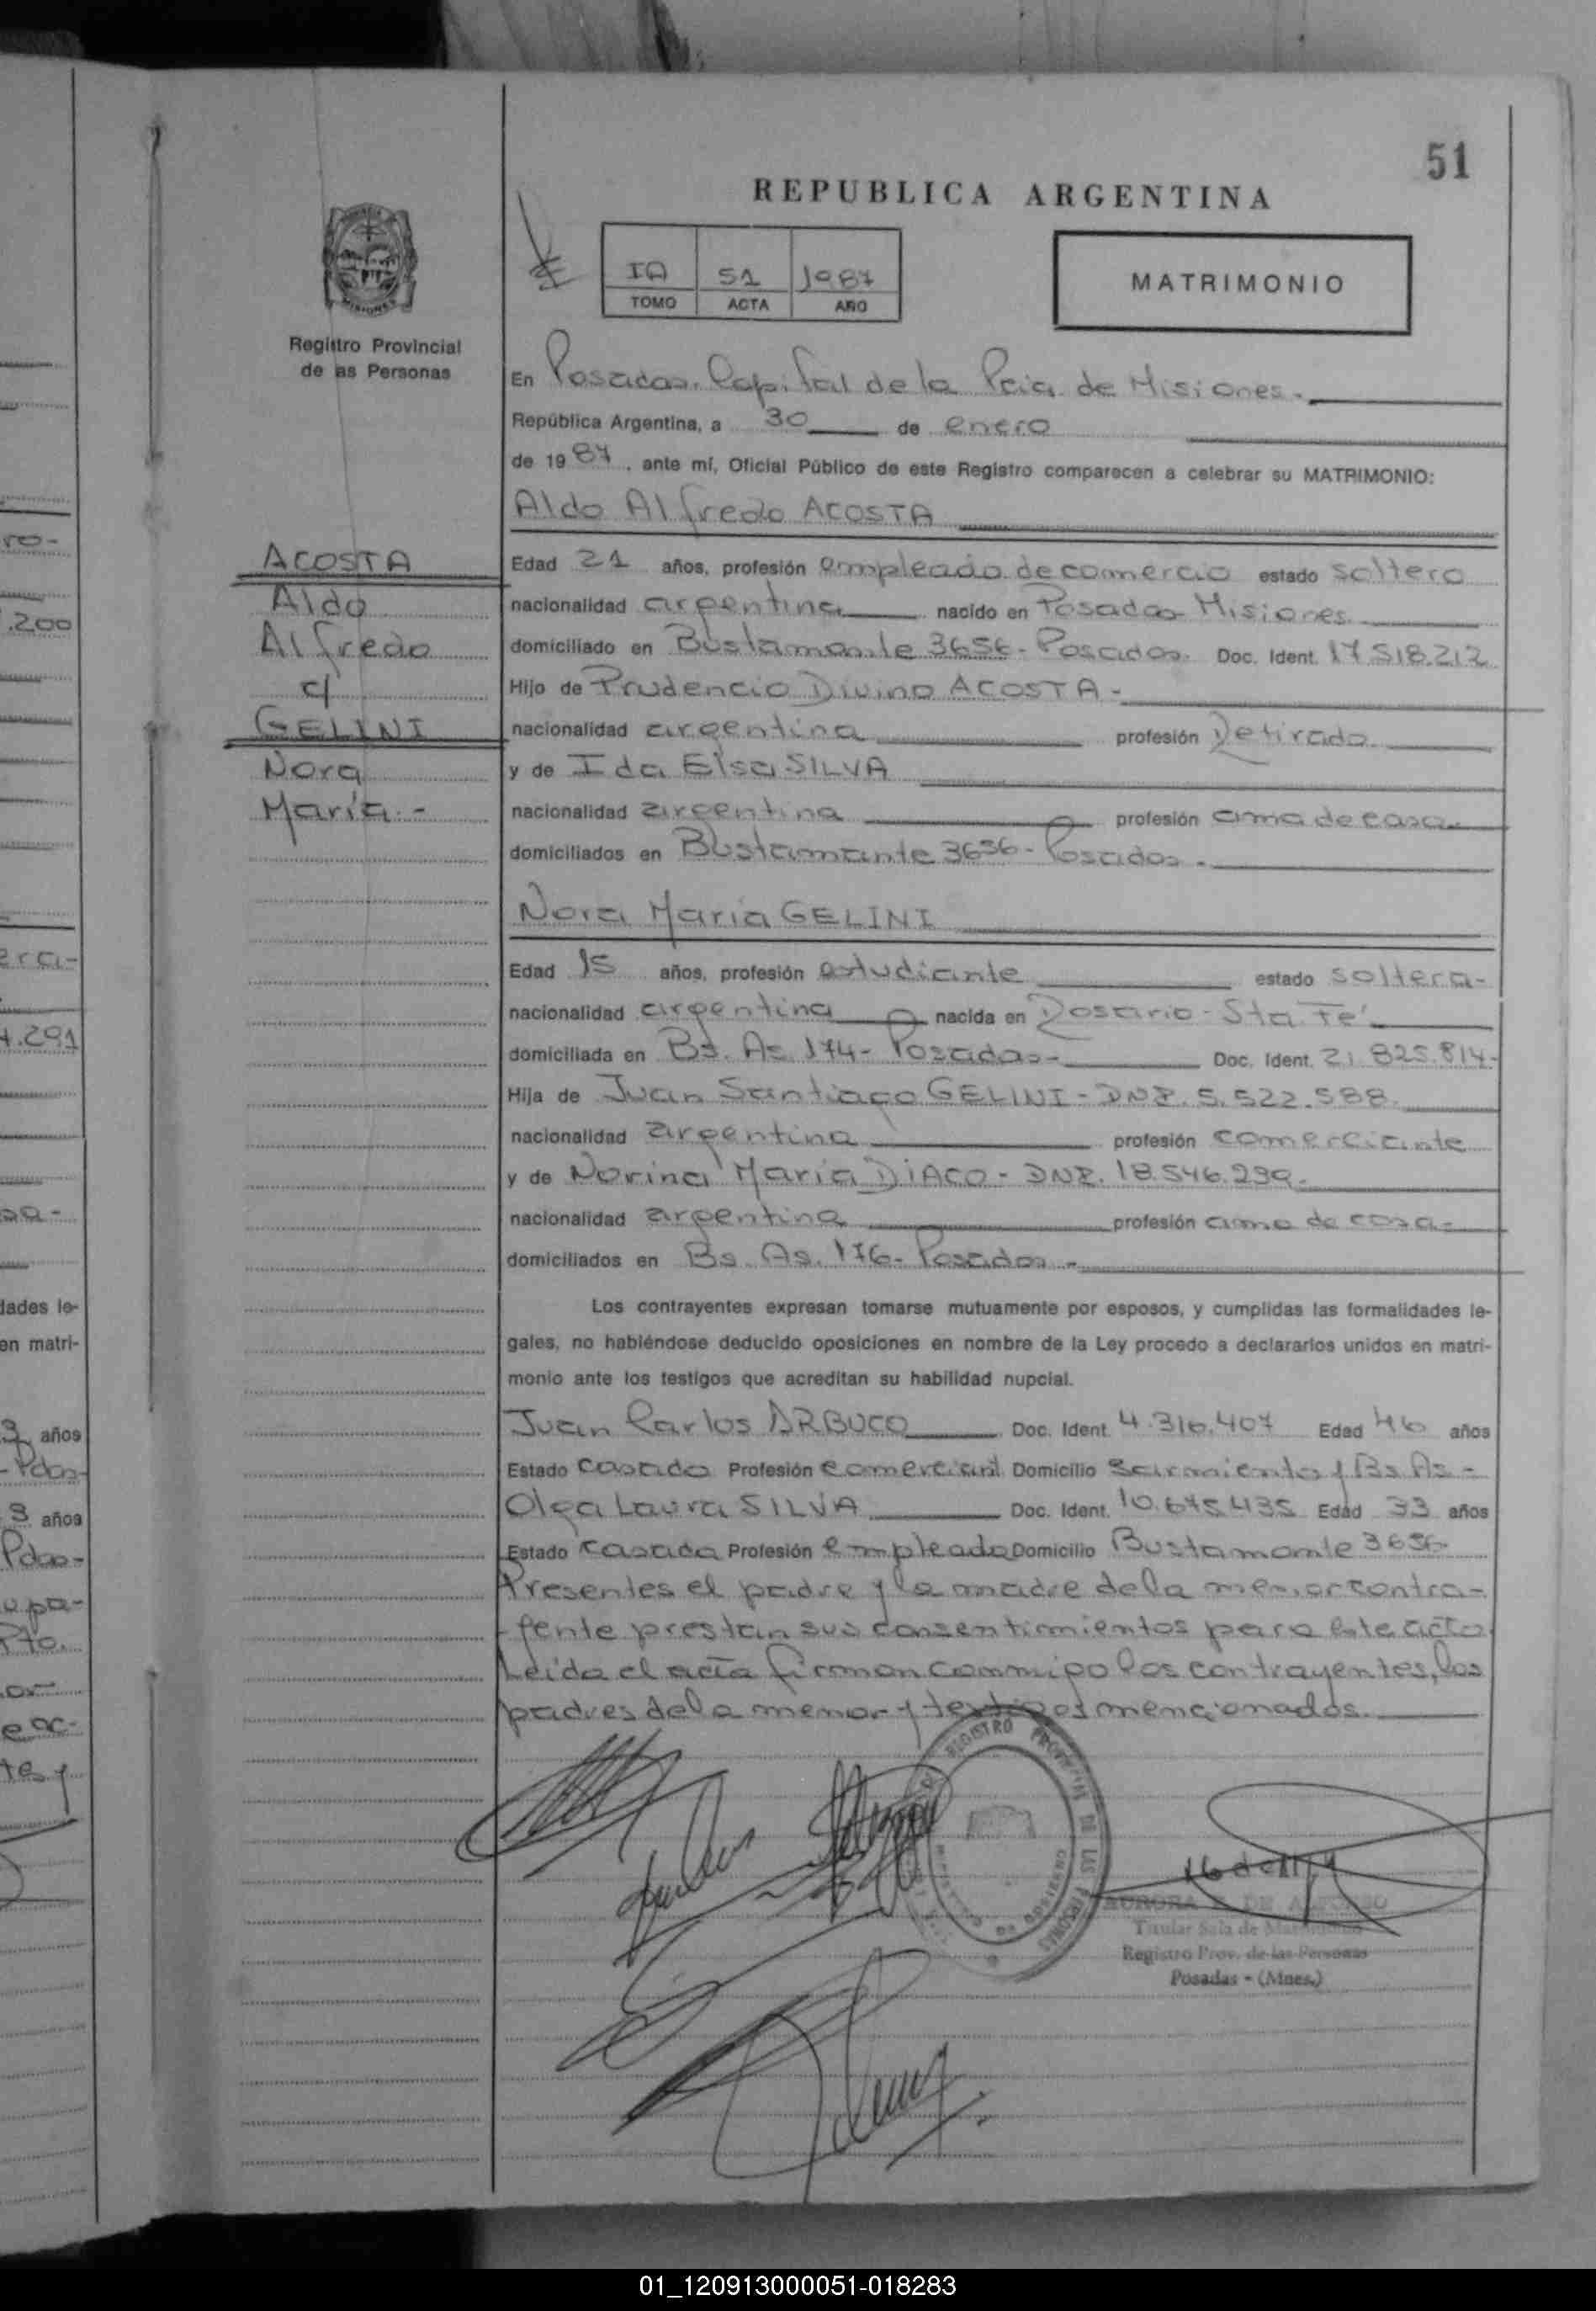 51
REPUBLICA ARGENTINA
IA 51 1987
TOMO ACTA AÑO
MATRIMONIO
MISIONES
Registro Provincial
de as Personas
En Posadas. Capital de la Pcia. de Misiones.
República Argentina, a 30 de enero
de 1987, ante mí, Oficial Público de este Registro comparecen a celebrar su MATRIMONIO:
Aldo Alfredo ACOSTA
ACOSTA
Aldo
Alfredo
c/
GELINI
Nora
María.-
Edad 21 años, profesión empleado de comercio estado soltero
nacionalidad argentina nacido en Posadas Misiones
domiciliado en Bustamante 3656- Posadas. Doc. Ident. 17.518.212
Hijo de Prudencio Divino ACOSTA-
nacionalidad argentina profesión Retirado
y de Ida Elsa SILVA
nacionalidad argentina profesión ama de casa.
domiciliados en Bustamante 3656- Posadas.
Nora María GELINI
Edad 15 años, profesión estudiante estado soltera-
nacionalidad argentina nacida en Rosario- Sta. Fé
domiciliada en Bs. As. 174- Posadas- Doc. Ident. 21.825.814-
Hija de Juan Santiago GELINI- DNI. 5.522.588
nacionalidad argentina profesión comerciante
y de Norina María DIACO- DNI. 18.546.239.
nacionalidad argentina profesión ama de casa-
domiciliados en Bs. As. 176- Posadas.-
Los contrayentes expresan tomarse mutuamente por esposos, y cumplidas las formalidades le-
gales, no habiéndose deducido oposiciones en nombre de la Ley procedo a declararlos unidos en matri-
monio ante los testigos que acreditan su habilidad nupcial.
Juan Carlos ARBUCO Doc. Ident. 4.316.407 Edad 46 años
Estado casado Profesión comerciant Domicilio Sarmiento y Bs As-
Olga Laura SILVA Doc. Ident. 10.675.435 Edad 33 años
Estado casada Profesión empleada Domicilio Bustamante 3656
Presentes el padre y la madre de la menor contra-
yente prestan sus consentimientos para este acto
Leida el acta firman conmigo los contrayentes, los
padres de la menor y testigos mencionados.
REGISTRO PROVINCIAL DE LAS PERSONAS
AURORA DE
Titular Sala de
Registro Prov. de las Personas
Posadas - (Mnes.)
ro-
.200
era-
4.291
sa-
dades le-
en matri-
3 años
- Pdas-
3 años
Pdas-
u pa-
to.
or
e ac-
tes y
01_120913000051-018283